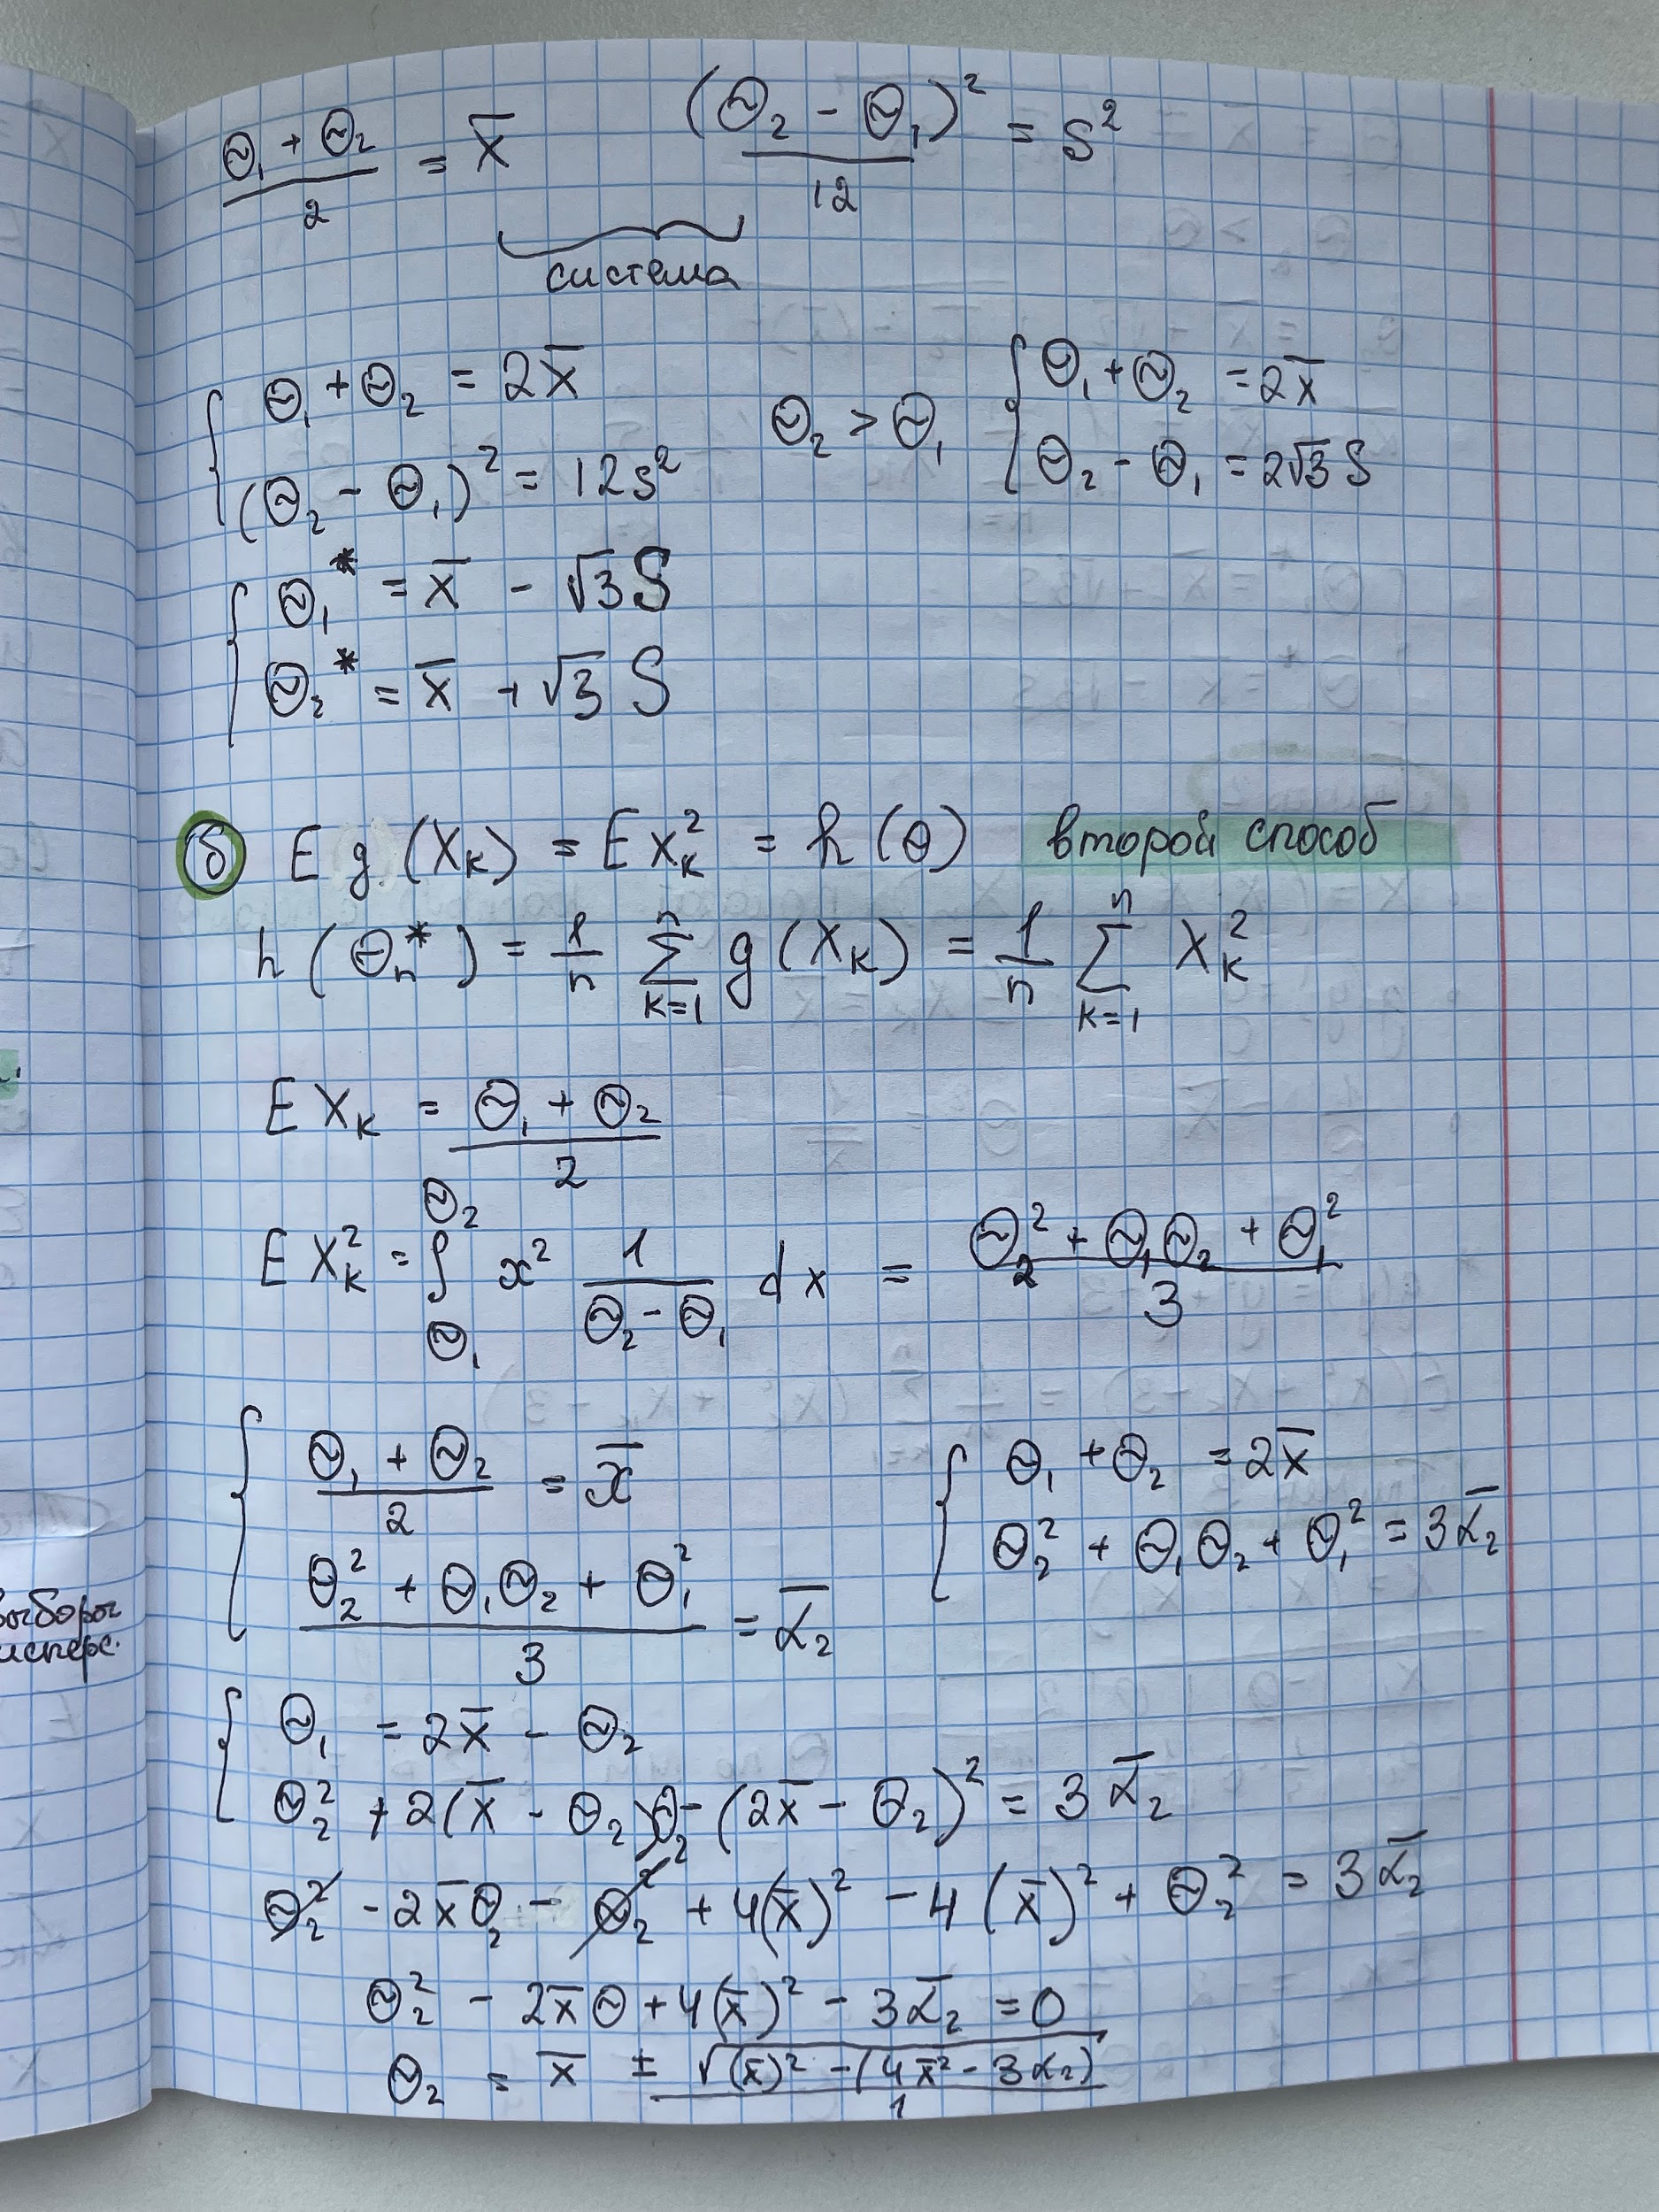 (Θ₁ + Θ₂)/2 = x̄    (Θ₂ − Θ₁)²/12 = s²
система
{ Θ₁ + Θ₂ = 2x̄    Θ₂ > Θ₁    { Θ₁ + Θ₂ = 2x̄
(Θ₂ − Θ₁)² = 12s²    Θ₂ − Θ₁ = 2√3 S
{ Θ₁* = x̄ − √3 S
Θ₂* = x̄ + √3 S
б E g(X_k) = E X_k² = h(θ) второй способ
h(Θ_n*) = 1/n Σ_{k=1}^{n} g(X_k) = 1/n Σ_{k=1}^{n} X_k²
E X_k = (Θ₁ + Θ₂)/2
E X_k² = ∫_{Θ₁}^{Θ₂} x² 1/(Θ₂ − Θ₁) dx = (Θ₂² + Θ₁Θ₂ + Θ₁²)/3
{ (Θ₁ + Θ₂)/2 = x̄    { Θ₁ + Θ₂ = 2x̄
(Θ₂² + Θ₁Θ₂ + Θ₁²)/3 = ᾱ₂    Θ₂² + Θ₁Θ₂ + Θ₁² = 3ᾱ₂
{ Θ₁ = 2x̄ − Θ₂
Θ₂² + 2(x̄ − Θ₂)Θ₂ − (2x̄ − Θ₂)² = 3ᾱ₂
Θ₂² − 2x̄Θ₂ − Θ₂² + 4(x̄)² − 4(x̄)² + Θ₂² = 3ᾱ₂
Θ₂² − 2x̄Θ + 4(x̄)² − 3ᾱ₂ = 0
Θ₂ = x̄ ± √((x̄)² − (4x̄² − 3α₂))/1
выборы